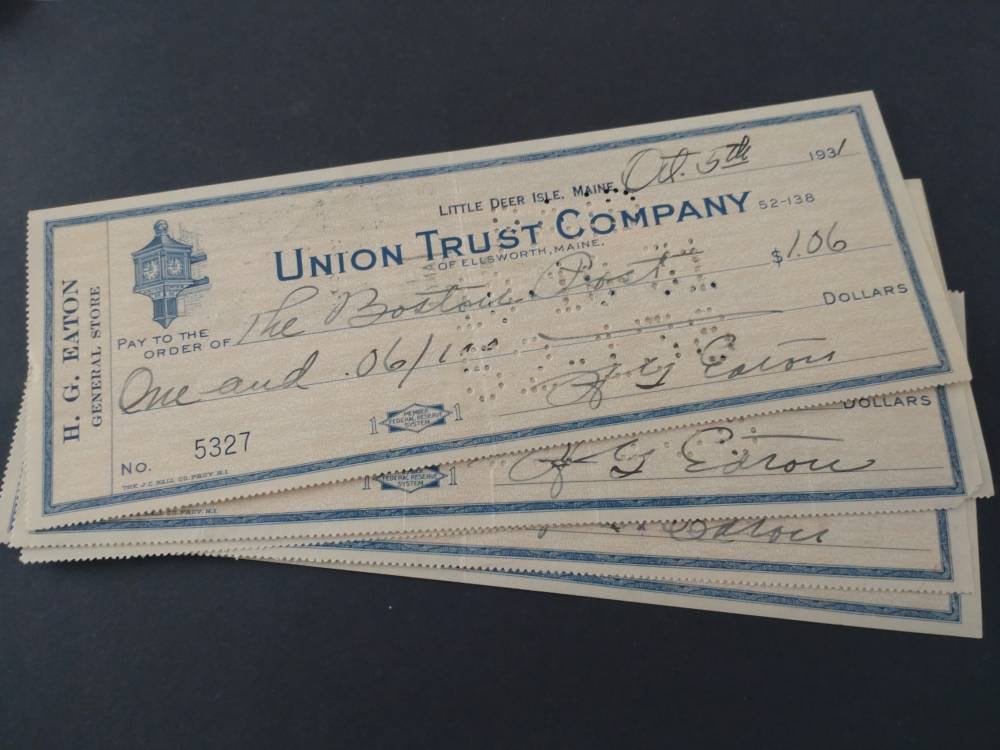 H. G. EATON
GENERAL STORE
LITTLE DEER ISLE, MAINE, Oct. 5th 1931
UNION TRUST COMPANY 52-138
OF ELLSWORTH, MAINE.
PAY TO THE
ORDER OF The Boston Post $1.06
One and .06/100 DOLLARS
H G Eaton
1 MEMBER FEDERAL RESERVE SYSTEM 1
NO. 5327
THE J.C. HALL CO. PROV. R.I.
DOLLARS
H G Eaton
1 FEDERAL RESERVE SYSTEM 1
PROV. R.I.
Eaton